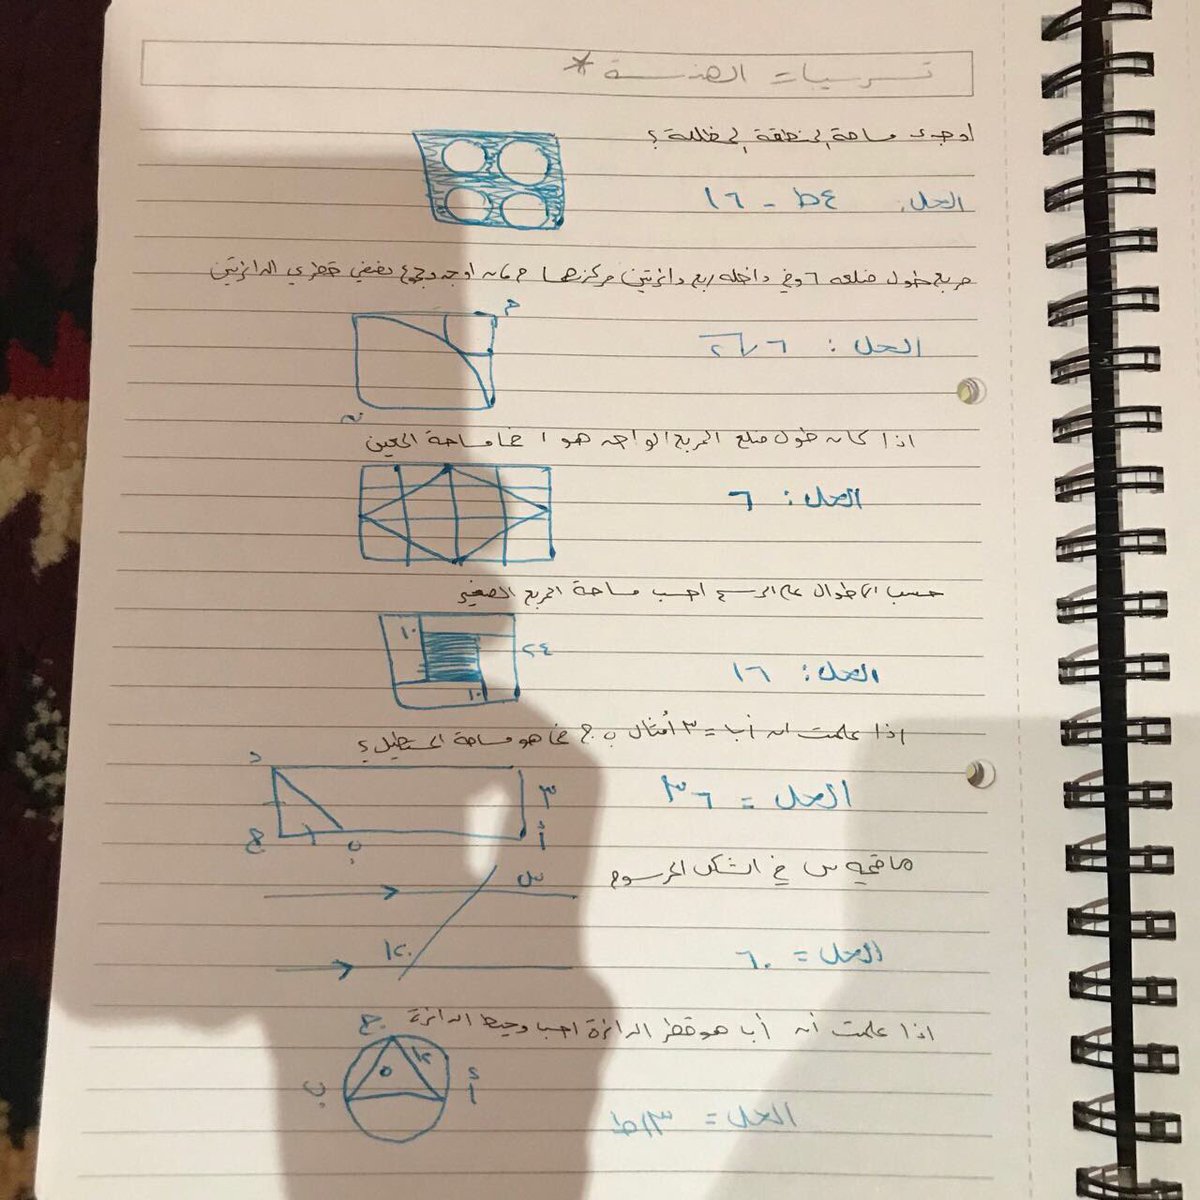 تسريبات الهندسة *
اوجد مساحة المنطقة المظللة ؟
الحل: ١٦ - ٤ط
مربع طول ضلعه ٦ وفي داخله ربع دائرتين مركزهما م ، ن اوجد مجموع نصفي قطري الدائرتين
م
الحل : ٦√٢
ن
اذا كان طول ضلع المربع الواحد هو ١ فما مساحة المعين
الحل : ٦
حسب الاطوال على الرسم احسب مساحة المربع الصغير
١٠
٢٤
الحل : ١٦
١٠
اذا علمت ان أب = ٣ أمثال ب ج فما هو مساحة المستطيل ؟
د
٣
الحل = ٣٦
ج
ب
أ
ما قيمه س في الشكل المرسوم
س
١٢٠
الحل = ٦٠
اذا علمت أن أب هو قطر الدائرة احسب محيط الدائرة
ج
١٢
٥
ب
أ
الحل = ١٣ط